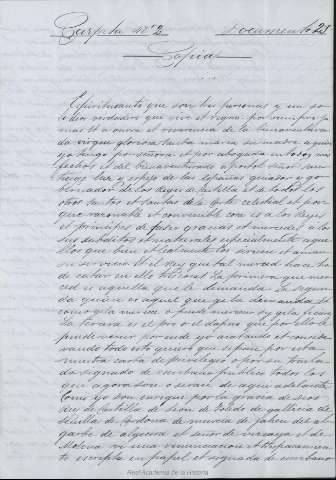 Carpeta nº 2 Documento 21
Copia
Espiritusanto que son tres personas y un solo
dios verdadero que vive et regna por siempre ja
mas et a onra et reverencia de la bienaventura
da virgen gloriosa santa maria su madre a quien
yo tengo por señora et por abogada en todos mis
fechos et del bienaventurado apostol señor san
tiago luz y espejo de las españas guiador y go
bernador de los Reyes de castilla et de todos los
otros santos et santas de la corte celestial et por
que razonable et convenible cosa es a los Reyes
et principes de facer gracias et mercedes a los
sus subditos et naturales especialmente a aque
llos que bien et lealmente los sirven et aman
su servicio et el rey que tal merced face ha
de catar en ello tres cosas La primera que mer
ced es aquella que le demanda La segun
da quien es aquel que ge la demanda et
como ge la merece o puede merecer sy ge la ficiere
La tercera es el pro o el dapno que por ello le
puede venir por ende yo acatando et conside
rando todo esto quiero que sepan por esta
nuestra carta de previlegio o por su trasla
do signado de escribano publico todos los
que agora son o seran de aqui adelante
Como yo don enrique por la gracia de dios
Rey de Castilla de Leon de Toledo de gallicia de
Sevilla de Cordova de murcia de Jahen del al
garbe de algecira et señor de vizcaya et de
Molina vi una renunciacion et traspasamien
to escripto en papel et signado de escribano
Real Academia de la Historia